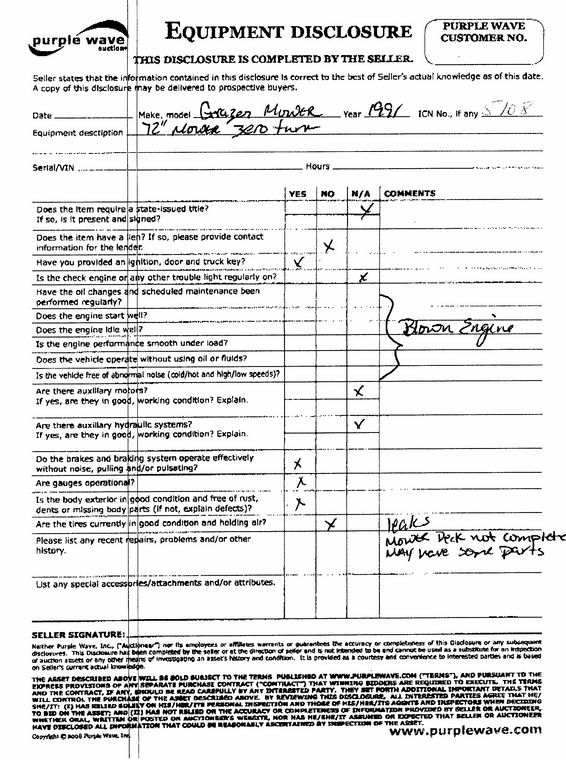 purple wave
auction
EQUIPMENT DISCLOSURE
PURPLE WAVE
CUSTOMER NO.
THIS DISCLOSURE IS COMPLETED BY THE SELLER.
Seller states that the information contained in this disclosure is correct to the best of Seller's actual knowledge as of this date.
A copy of this disclosure may be delivered to prospective buyers.
Date Make, model Grazer Mower Year 1991 ICN No., if any 5108
Equipment description 72" Mower zero turn
Serial/VIN Hours
YES NO N/A COMMENTS
Does the item require a state-issued title? X
If so, is it present and signed?
Does the item have a lien? If so, please provide contact
information for the lender. X
Have you provided an ignition, door and truck key? X
Is the check engine or any other trouble light regularly on? X
Have the oil changes and scheduled maintenance been
performed regularly?
Does the engine start well?
Does the engine idle well? Blown Engine
Is the engine performance smooth under load?
Does the vehicle operate without using oil or fluids?
Is the vehicle free of abnormal noise (cold/hot and high/low speeds)?
Are there auxiliary motors? X
If yes, are they in good, working condition? Explain.
Are there auxiliary hydraulic systems? X
If yes, are they in good, working condition? Explain.
Do the brakes and braking system operate effectively
without noise, pulling and/or pulsating? X
Are gauges operational? X
Is the body exterior in good condition and free of rust,
dents or missing body parts (if not, explain defects)? X
Are the tires currently in good condition and holding air? X leaks
Please list any recent repairs, problems and/or other Mower Deck not complete
history. May have some parts
List any special accessories/attachments and/or attributes.
SELLER SIGNATURE:
Neither Purple Wave, Inc., ("Auctioneer") nor its employees or affiliates warrants or guarantees the accuracy or completeness of this Disclosure or any subsequent
disclosures. This Disclosure has been completed by the seller or at the direction of seller and is not intended to be and cannot be used as a substitute for an inspection
of auction assets or any other means of investigating an asset's history and condition. It is provided as a courtesy and convenience to interested parties and is based
on Seller's current actual knowledge.
THE ASSET DESCRIBED ABOVE WILL BE SOLD SUBJECT TO THE TERMS PUBLISHED AT WWW.PURPLEWAVE.COM ("TERMS"), AND PURSUANT TO THE
EXPRESS PROVISIONS OF ANY SEPARATE PURCHASE CONTRACT ("CONTRACT") THAT WINNING BIDDERS ARE REQUIRED TO EXECUTE. THE TERMS
AND THE CONTRACT, IF ANY, SHOULD BE READ CAREFULLY BY ANY INTERESTED PARTY. THEY SET FORTH ADDITIONAL IMPORTANT DETAILS THAT
WILL CONTROL THE PURCHASE OF THE ASSET DESCRIBED ABOVE. BY REVIEWING THIS DISCLOSURE, ALL INTERESTED PARTIES AGREE THAT HE/
SHE/IT: (I) HAS RELIED SOLELY ON HIS/HER/ITS PERSONAL INSPECTION AND THOSE OF HIS/HER/ITS AGENTS AND INSPECTORS WHEN DECIDING
TO BID ON THE ASSET; AND (II) HAS NOT RELIED ON THE ACCURACY OR COMPLETENESS OF INFORMATION PROVIDED BY SELLER OR AUCTIONEER,
WHETHER ORAL, WRITTEN OR POSTED ON AUCTIONEER'S WEBSITE, NOR HAS HE/SHE/IT ASSUMED OR EXPECTED THAT SELLER OR AUCTIONEER
HAVE DISCLOSED ALL INFORMATION THAT COULD BE REASONABLY ASCERTAINED BY INSPECTION OF THE ASSET.
Copyright © 2008 Purple Wave, Inc.
www.purplewave.com